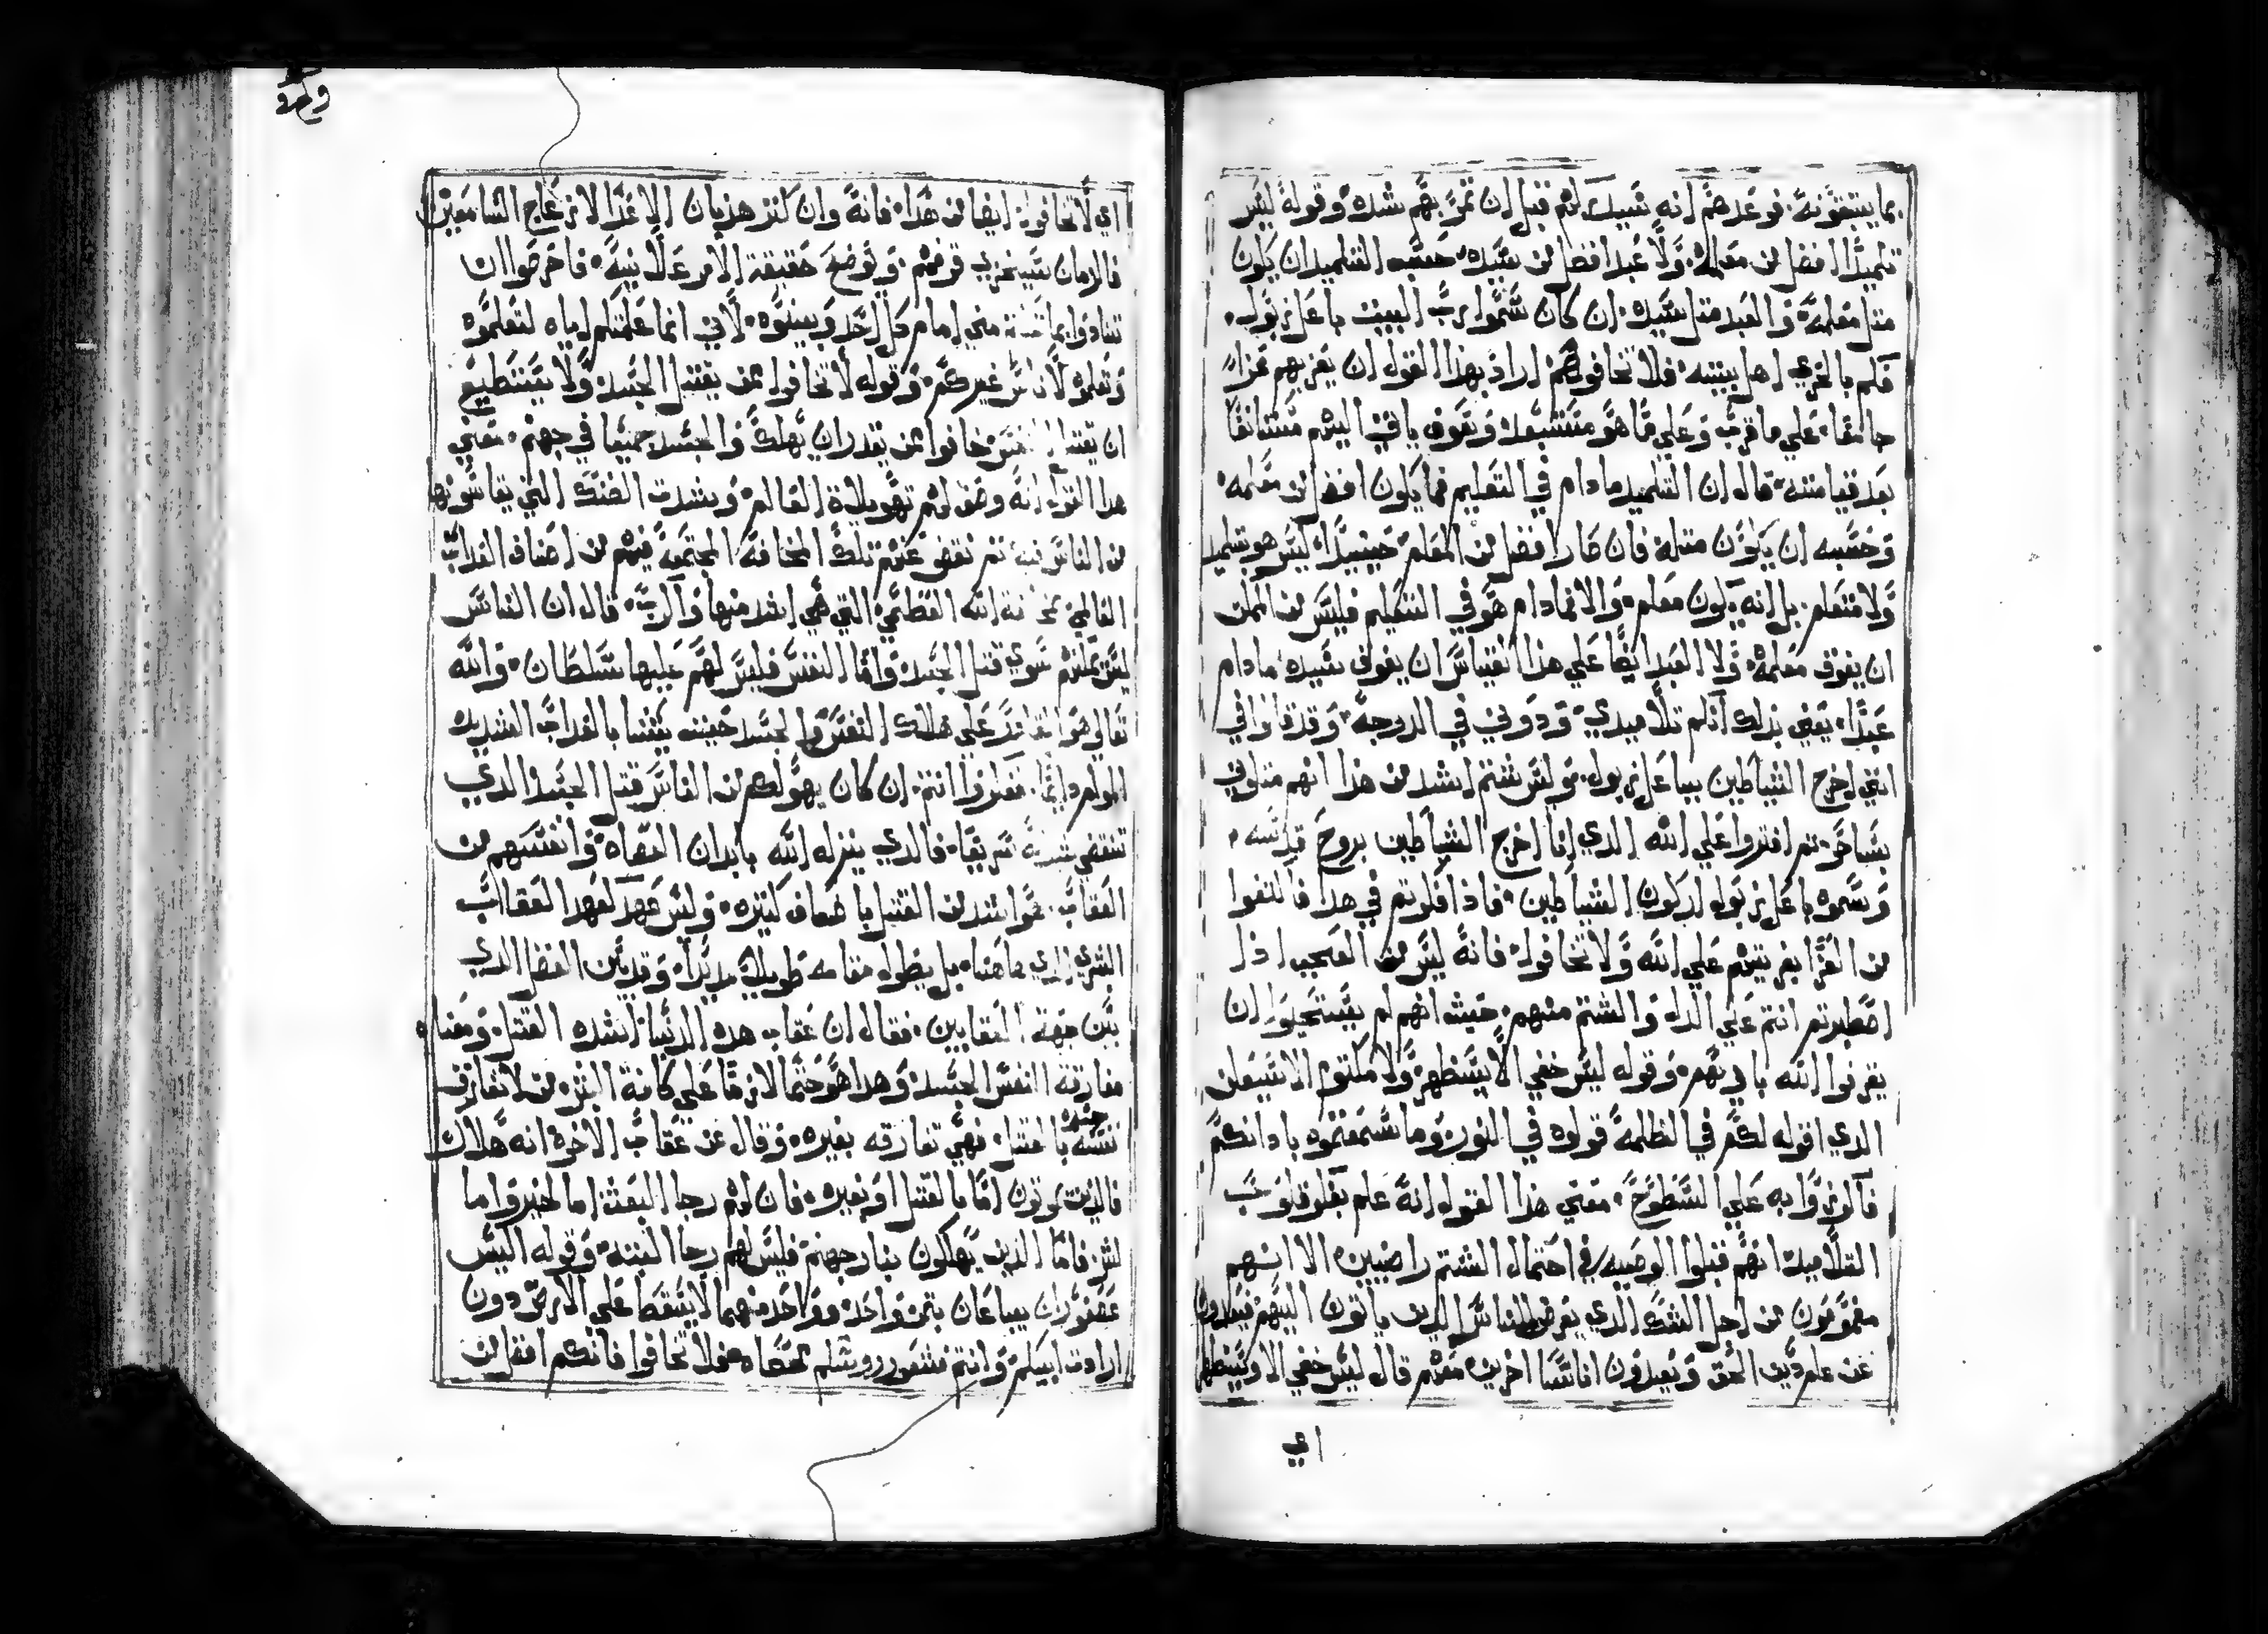 بما يتبقونه. فوعدهم انه سيدركهم قبل ان تمر بهم شده وقوله ليس
تلميذا افضل من معلمه. ولا عبدا افضل من سيده. حسب التلميد ان يكون
متل معلمه والعبد متل سيده. ان كان سموا رب البيت باعل زبول.
فكم بالحري اهل بيته. فلا تخافوهم. اراد بهدا القول ان يعزيهم عزاءً
جامعا. علي ما قرب وعلي ما هو
بعد قيامته. قال ان التلميد ما دام في التعليم فما يكون افضل من معلمه.
وحسبه ان يكون متله فان صار افضل من المعلم. حينيدا ليس هو بتلميد
ولا متعلم. بل انه يكون معلم. والا فما دام هو في التعليم فليس من الممكن
ان يفوق معلمه. ولا العبد ايضا علي هذا القياس ان يفوق سيده ما دام
عبدا. يعني بذلك انكم تلاميدي. ودوني في الدرجه. وقد قالوا في
انني اخرج الشياطين بباعل زبول. وليس شتم اشد من هذا انهم متلوني
بساحر. تم افتروا علي الله الذي انا اخرج الشياطين بروح قدسه.
وسموه باعل زبول اركون الشياطين. فاذا فكرتم في هدا فاكتفوا
من العزا بفريتهم علي الله ولا تخافوا. فانه ليس من العجب اذا
اصطبرتم انتم علي الذل والشتم منهم. حيث انهم لم يستحيوا ان
يقرنوا الله باذيتهم. وقوله ليس خفي الا يستظهر. ولا مكتوم الا سيعلن
الدي اقوله لكم في الظلمه قولوه في النور وما سمعتموه باذانكم
فاكرزوا به علي السطوح. معني هذا القول انه علم بقلق قلوب
التلاميد انهم قبلوا الوصيه في احتمال الشتم راضيين الا انهم
مغمومون من اجل الشك الدي يعرض للناس الدين ياتون اليهم فيصدون
عن علم دين الحق ويصدون اناسا اخرين معهم قال ليس خفي الا ويستظهر
اي
واحد
اي لا تخافوا ايضا من هدا. فانه وان كثر هزيان الاعدا لانزعاج السامعين
فالزمان سيخزي قرفهم. ويوضح حقيقة الامر علانيه. فاحرصوا ان
تنادوا بما مني امام كل احد وبينوه. لاني انما علمتكم اياه لتعلموه
وتعلموه لاناس غيركم. وقوله لا تخافوا ممن يقتل الجسد ولا يستطيع
ان يقتل النفس. خافوا ممن يقدر ان يهلك والجسد جميعا في جهنم. معني
هدا القول انه وصف لهم تهويلات العالم. وشدت الضنك التي يقاسونها
من الناس فيه. تم نقض عنهم تلك المخافه المجتمعه فيهم من اصناف العداب
العالمي بمخافة الله العظمي التي هي اشد منها واارب. قال ان الناس
ليس يمكنهم سوي قتل الجسد. واما النفس فليس لهم عليها سلطان. والله
تعالي هو القادر علي هلاك النفس والجسد حيث يتبتها بالعداب الشديد
المولم دايما. فتعلموا انتم. ان كان يهولكم من الناس قتل الجسد الدي
تنقضي سريعا. فالدي ينزله الله بابدان العصاه. وانفسهم من
العقاب. هو اشد من القتل باضعاف كتيره. وليس عهد كعهد العقاب
البشري الدي هاهنا. بل يطول مقامه طويلا مديدا. وقد بين الفضل الدي
بين جهة العقابين. فقال ان عقاب هده الدنيا اشده القتل. ومعناه
مفارقة النفس الجسد. وهدا هو حتما لازما علي كافة البشر. من لا تفارق
نفسه جسده بالقتل. فهي تفارقه بغيره. وقال عن عقاب الاخره انه هلاك
فالذين يموتون اما بالقتل او بغيره. فان لهم رجا البعث اما لخير واما
لشر. فاما الذين يهلكون بنار جهنم فليس لهم رجا البته. وقوله اليس
عصفوران يباعان بتمن واحد. وواحد منهما لا يسقط علي الارض دون
ارادت ابيكم. وانتم فشعور رووسكم محصاه. فلا تخافوا فانكم افضل من